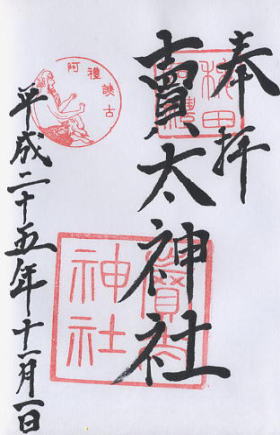 奉拝
稗田
賣太神社
阿禮誦古
賣太神社
平成二十五年十一月一日